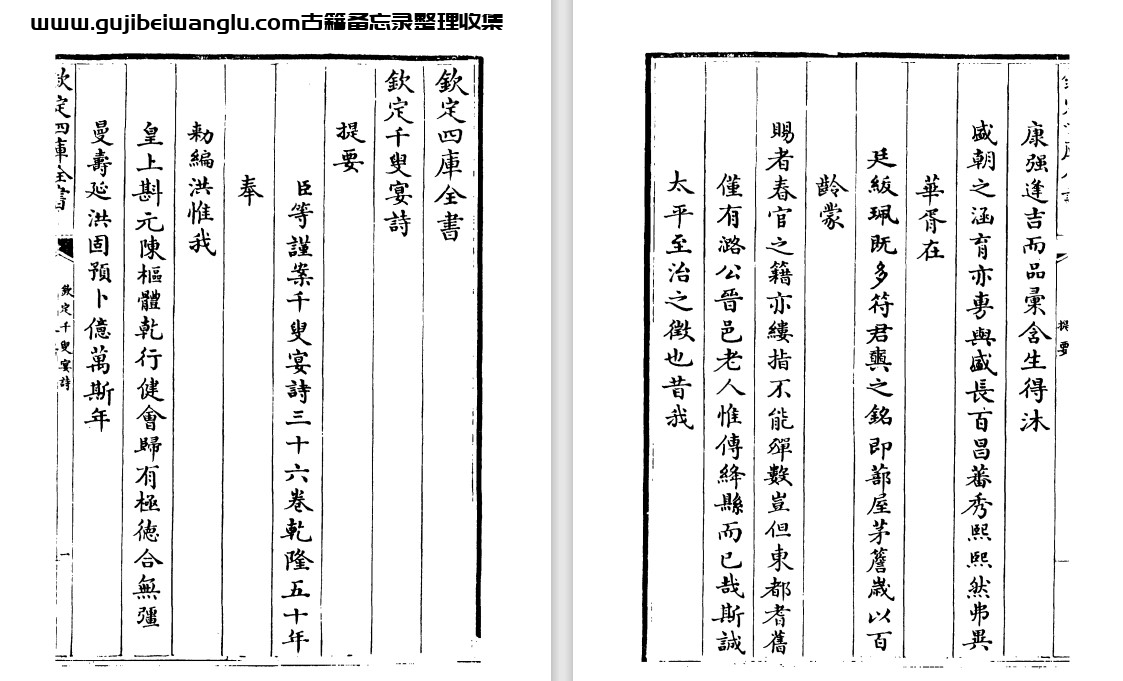 www.gujibeiwanglu.com古籍备忘录整理收集
欽定四庫全書
欽定千叟宴詩
提要
臣等謹案千叟宴詩三十六卷乾隆五十年
奉
勅編洪惟我
皇上斟元陳樞體乾行健會歸有極徳合無疆
曼壽延洪固預卜億萬斯年
欽定四庫全書
欽定千叟宴詩
一
提要
康强逢吉而品彚含生得沐
盛朝之涵育亦専與盛長百昌蕃秀熙熙然弗異
華胥在
廷紱珮既多符君奭之銘即蔀屋茅簷嵗以百
齡蒙
賜者春官之籍亦縷指不能殫數豈但東都耆舊
僅有潞公晉邑老人惟傳絳縣而已哉斯誠
太平至治之徴也昔我